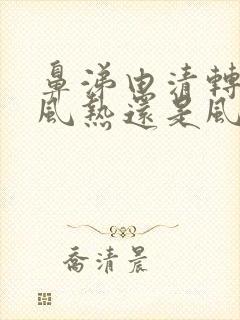 鼻涕由清轉
風熱還是風
喬清晨